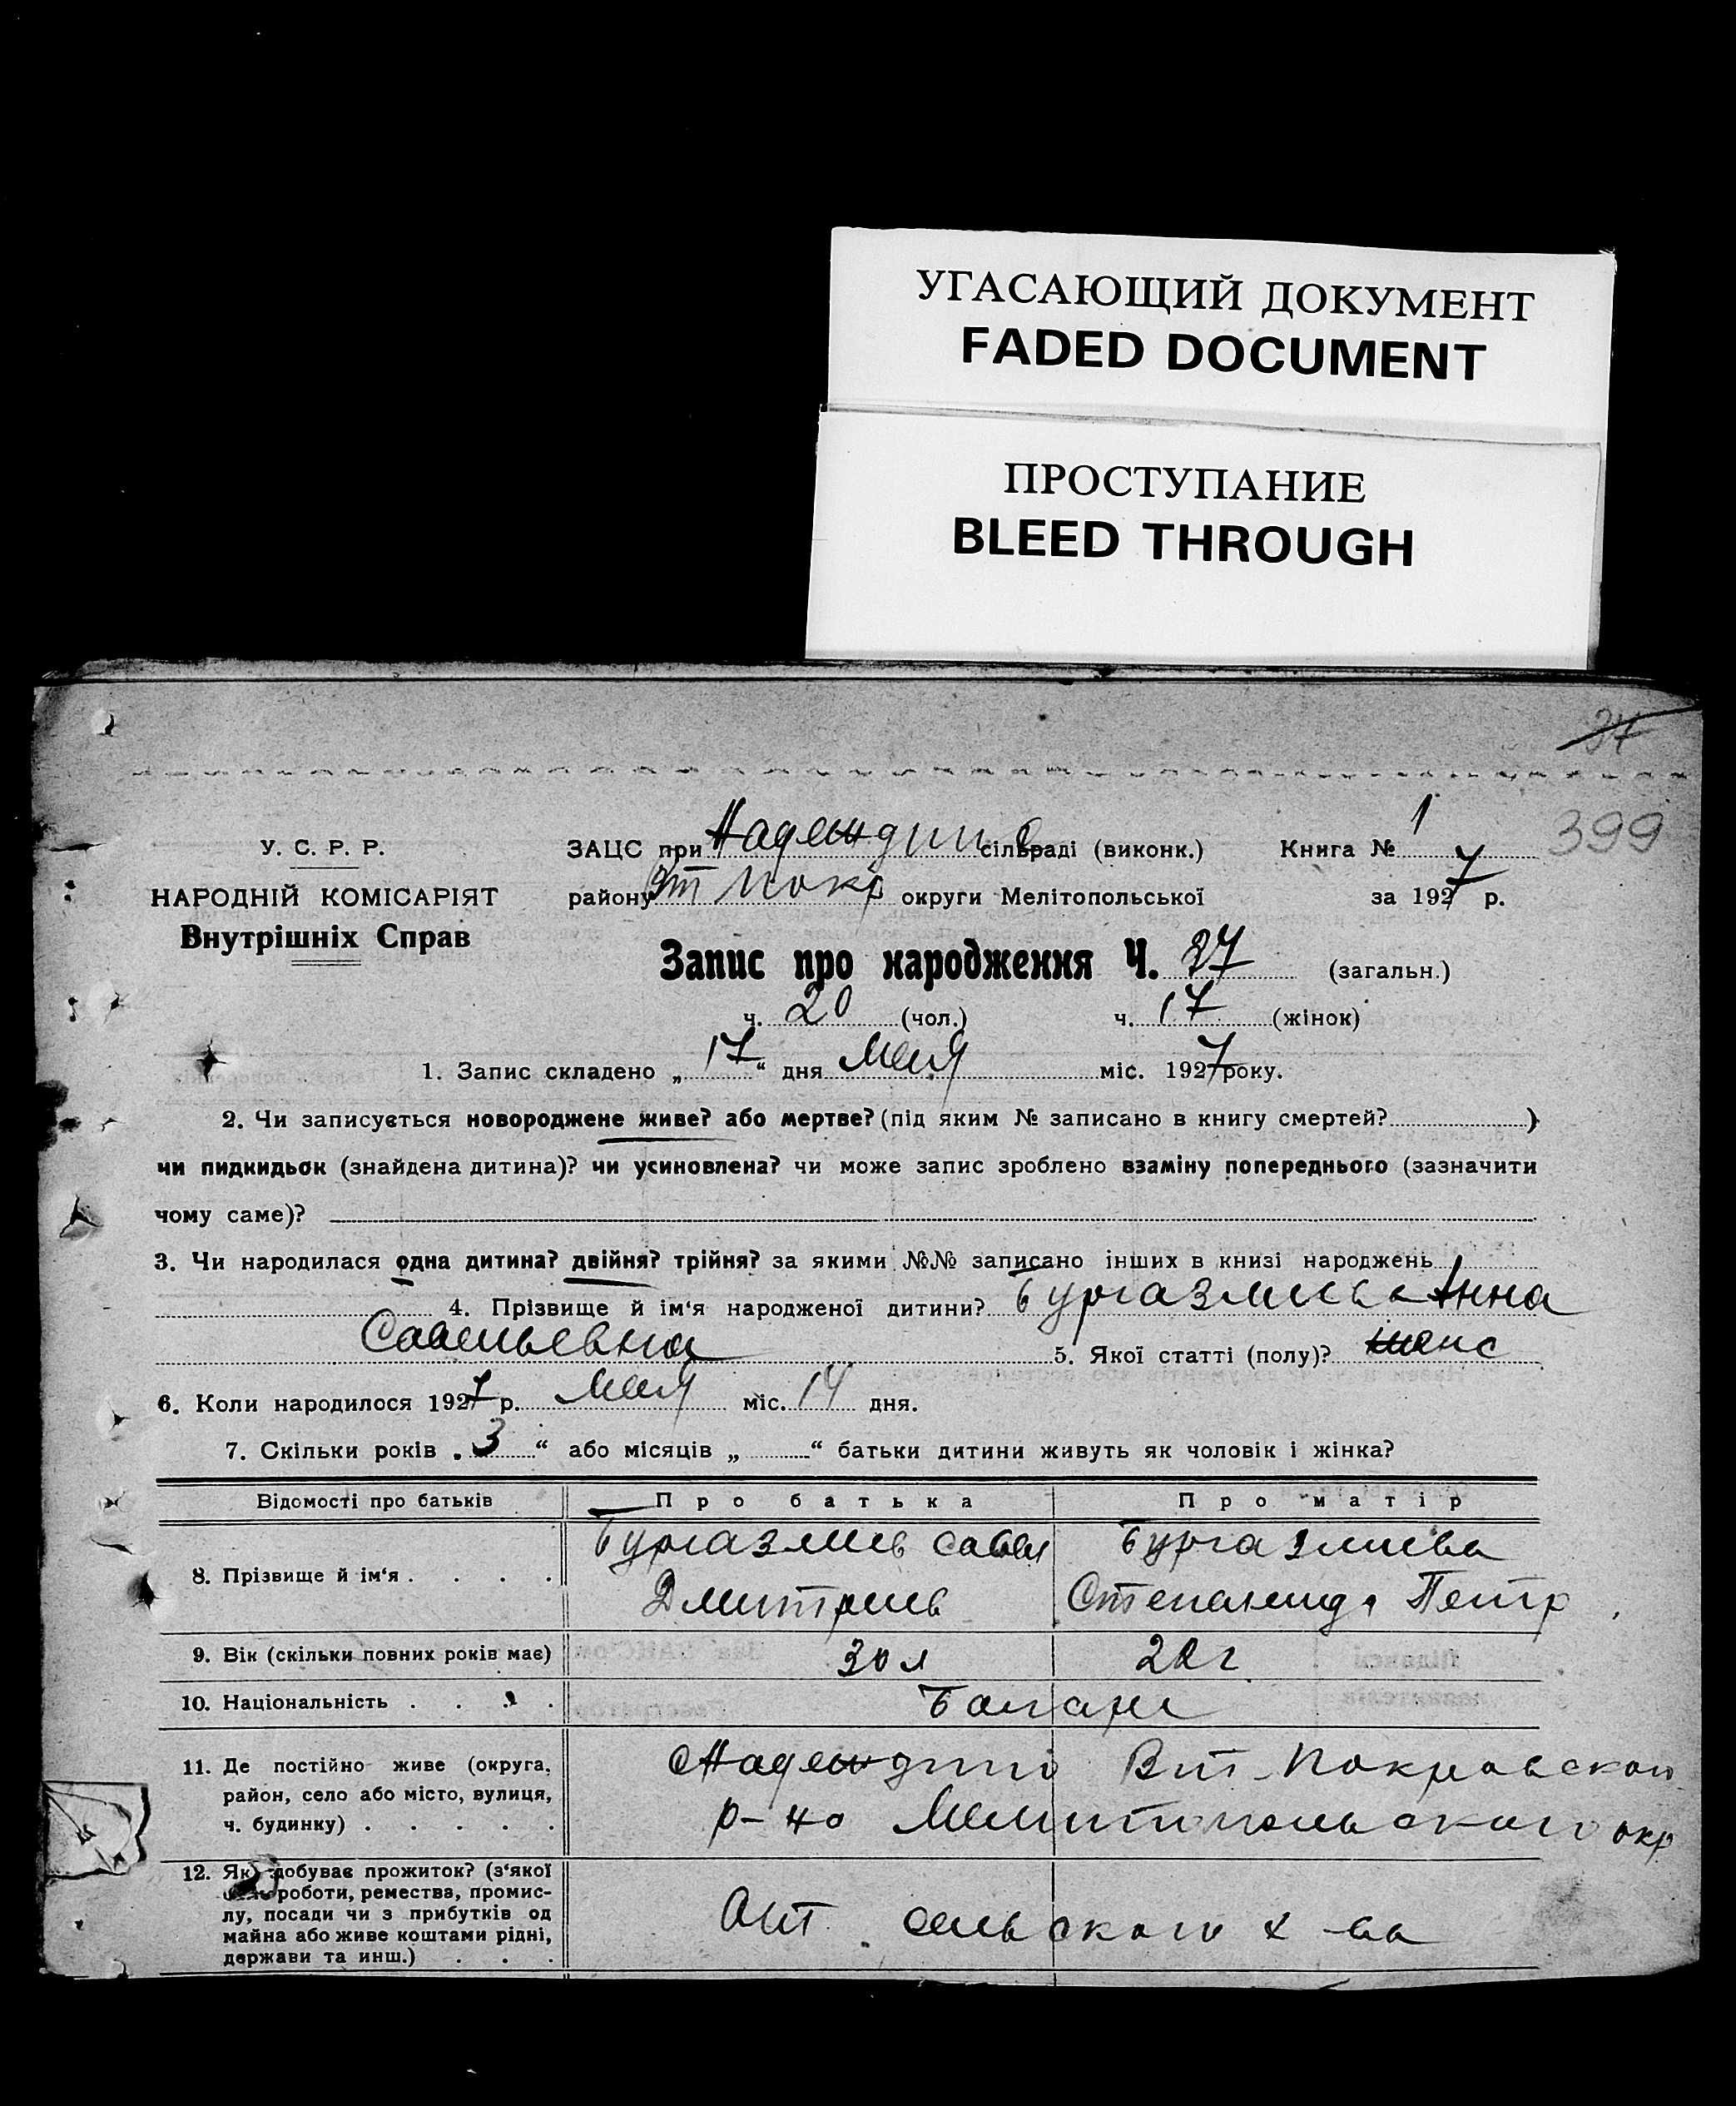 УГАСАЮЩИЙ ДОКУМЕНТ
FADED DOCUMENT
ПРОСТУПАНИЕ
BLEED THROUGH
37
399
У. С. Р. Р.
НАРОДНІЙ КОМІСАРІЯТ
Внутрішніх Справ
ЗАЦС при сільраді (виконк.) Книга № 1
району Вт Покр округи Мелітопольської за 1927 р.
Запис про народження Ч. 37 (загальн.)
ч. 20 (чол.) ч. 17 (жінок)
1. Запис складено „ 17 “ дня Мая міс. 1927 року.
2. Чи записується новороджене живе? або мертве? (під яким № записано в книгу смертей? )
чи пидкидьок (знайдена дитина)? чи усиновлена? чи може запис зроблено взаміну попереднього (зазначити
чому саме)?
3. Чи народилася одна дитина? двійня? трійня? за якими №№ записано інших в книзі народжень
4. Прізвище й ім‘я народженої дитини? Бургазлиева Анна
Савельевна 5. Якої статті (полу)? женс
6. Коли народилося 1927 р. Мая міс. 14 дня.
7. Скільки років „ 3 “ або місяців „ “ батьки дитини живуть як чоловік і жінка?
Відомості про батьків Про батька Про матір
8. Прізвище й ім‘я . . . . Бургазлиев Савел Бургазлиева
Дмитриев Степанида Петр
9. Вік (скільки повних років має) 30 л 22 г
10. Національність . . . . Болгаре
11. Де постійно живе (округа, район, село або місто, вулиця, ч. будинку) . . . . . Вт-Покровского
р-на Мелитопольского окр
12. Як добуває прожиток? (з‘якої
роботи, ремества, промис-
лу, посади чи з прибутків од
майна або живе коштами рідні,
держави та инш.) . . . От сельского х-ва